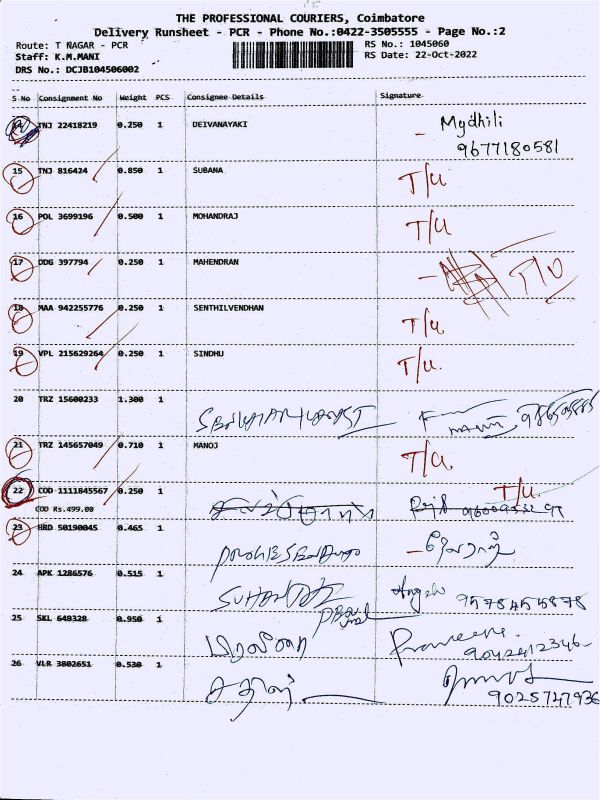 THE PROFESSIONAL COURIERS, Coimbatore
Delivery Runsheet - PCR - Phone No.:0422-3505555 - Page No.:2
Route: T NAGAR - PCR
RS No.: 1045060
Staff: K.M.MANI
RS Date: 22-Oct-2022
DRS No.: DCJB104506002
S No Consignment No Weight PCS Consignee Details Signature
14 TNJ 22418219 0.250 1 DEIVANAYAKI - Mydhili
9677180581
15 TNJ 816424 0.850 1 SUBANA T/U
16 POL 3699196 0.500 1 MOHANDRAJ T/U
17 DDG 397794 0.250 1 MAHENDRAN T/U
18 MAA 942255776 0.250 1 SENTHILVENDHAN T/U
19 VPL 215629264 0.250 1 SINDHU T/U.
20 TRZ 15600233 1.300 1
21 TRZ 145657049 0.710 1 MANOJ T/U
22 COD 1111845567 0.250 1 T/U.
COD Rs.499.00
23 HRD 50190045 0.465 1
24 APK 1286576 0.515 1 9578455878
25 SKL 640328 0.950 1 Praveen
9042412346
26 VLR 3802651 0.530 1
9025747936